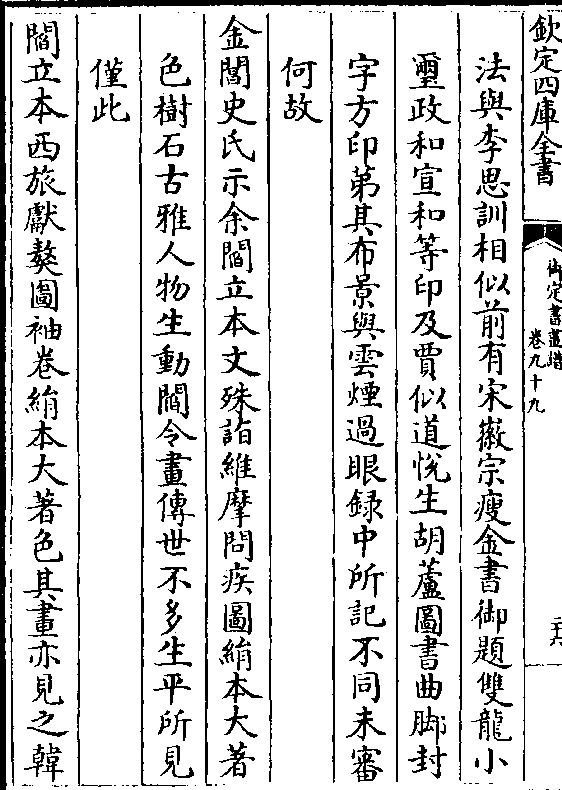 欽定四庫全書
御定書畫譜
卷九十九
二六
法與李思訓相似前有宋徽宗瘦金書御題雙龍小
璽政和宣和等印及賈似道悅生胡蘆圖書曲脚封
字方印第其布景與雲煙過眼録中所記不同未審
何故
金閶史氏示余閻立本文殊詣維摩問疾圖絹本大著
色樹石古雅人物生動閻令畫傳世不多生平所見
僅此
閻立本西旅獻獒圖袖卷絹本大著色其畫亦見之韓